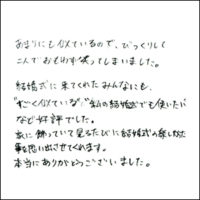 あまりにも似ているので、びっくりして
二人でおもわず笑ってしまいました。
結婚式に来てくれたみんなにも、
"すごく似ている""私の結婚式でも使いたい"
など好評でした。
家に飾っていて見るたびに結婚式の楽しかった
事を思い出させてくれます。
本当にありがとうございました。